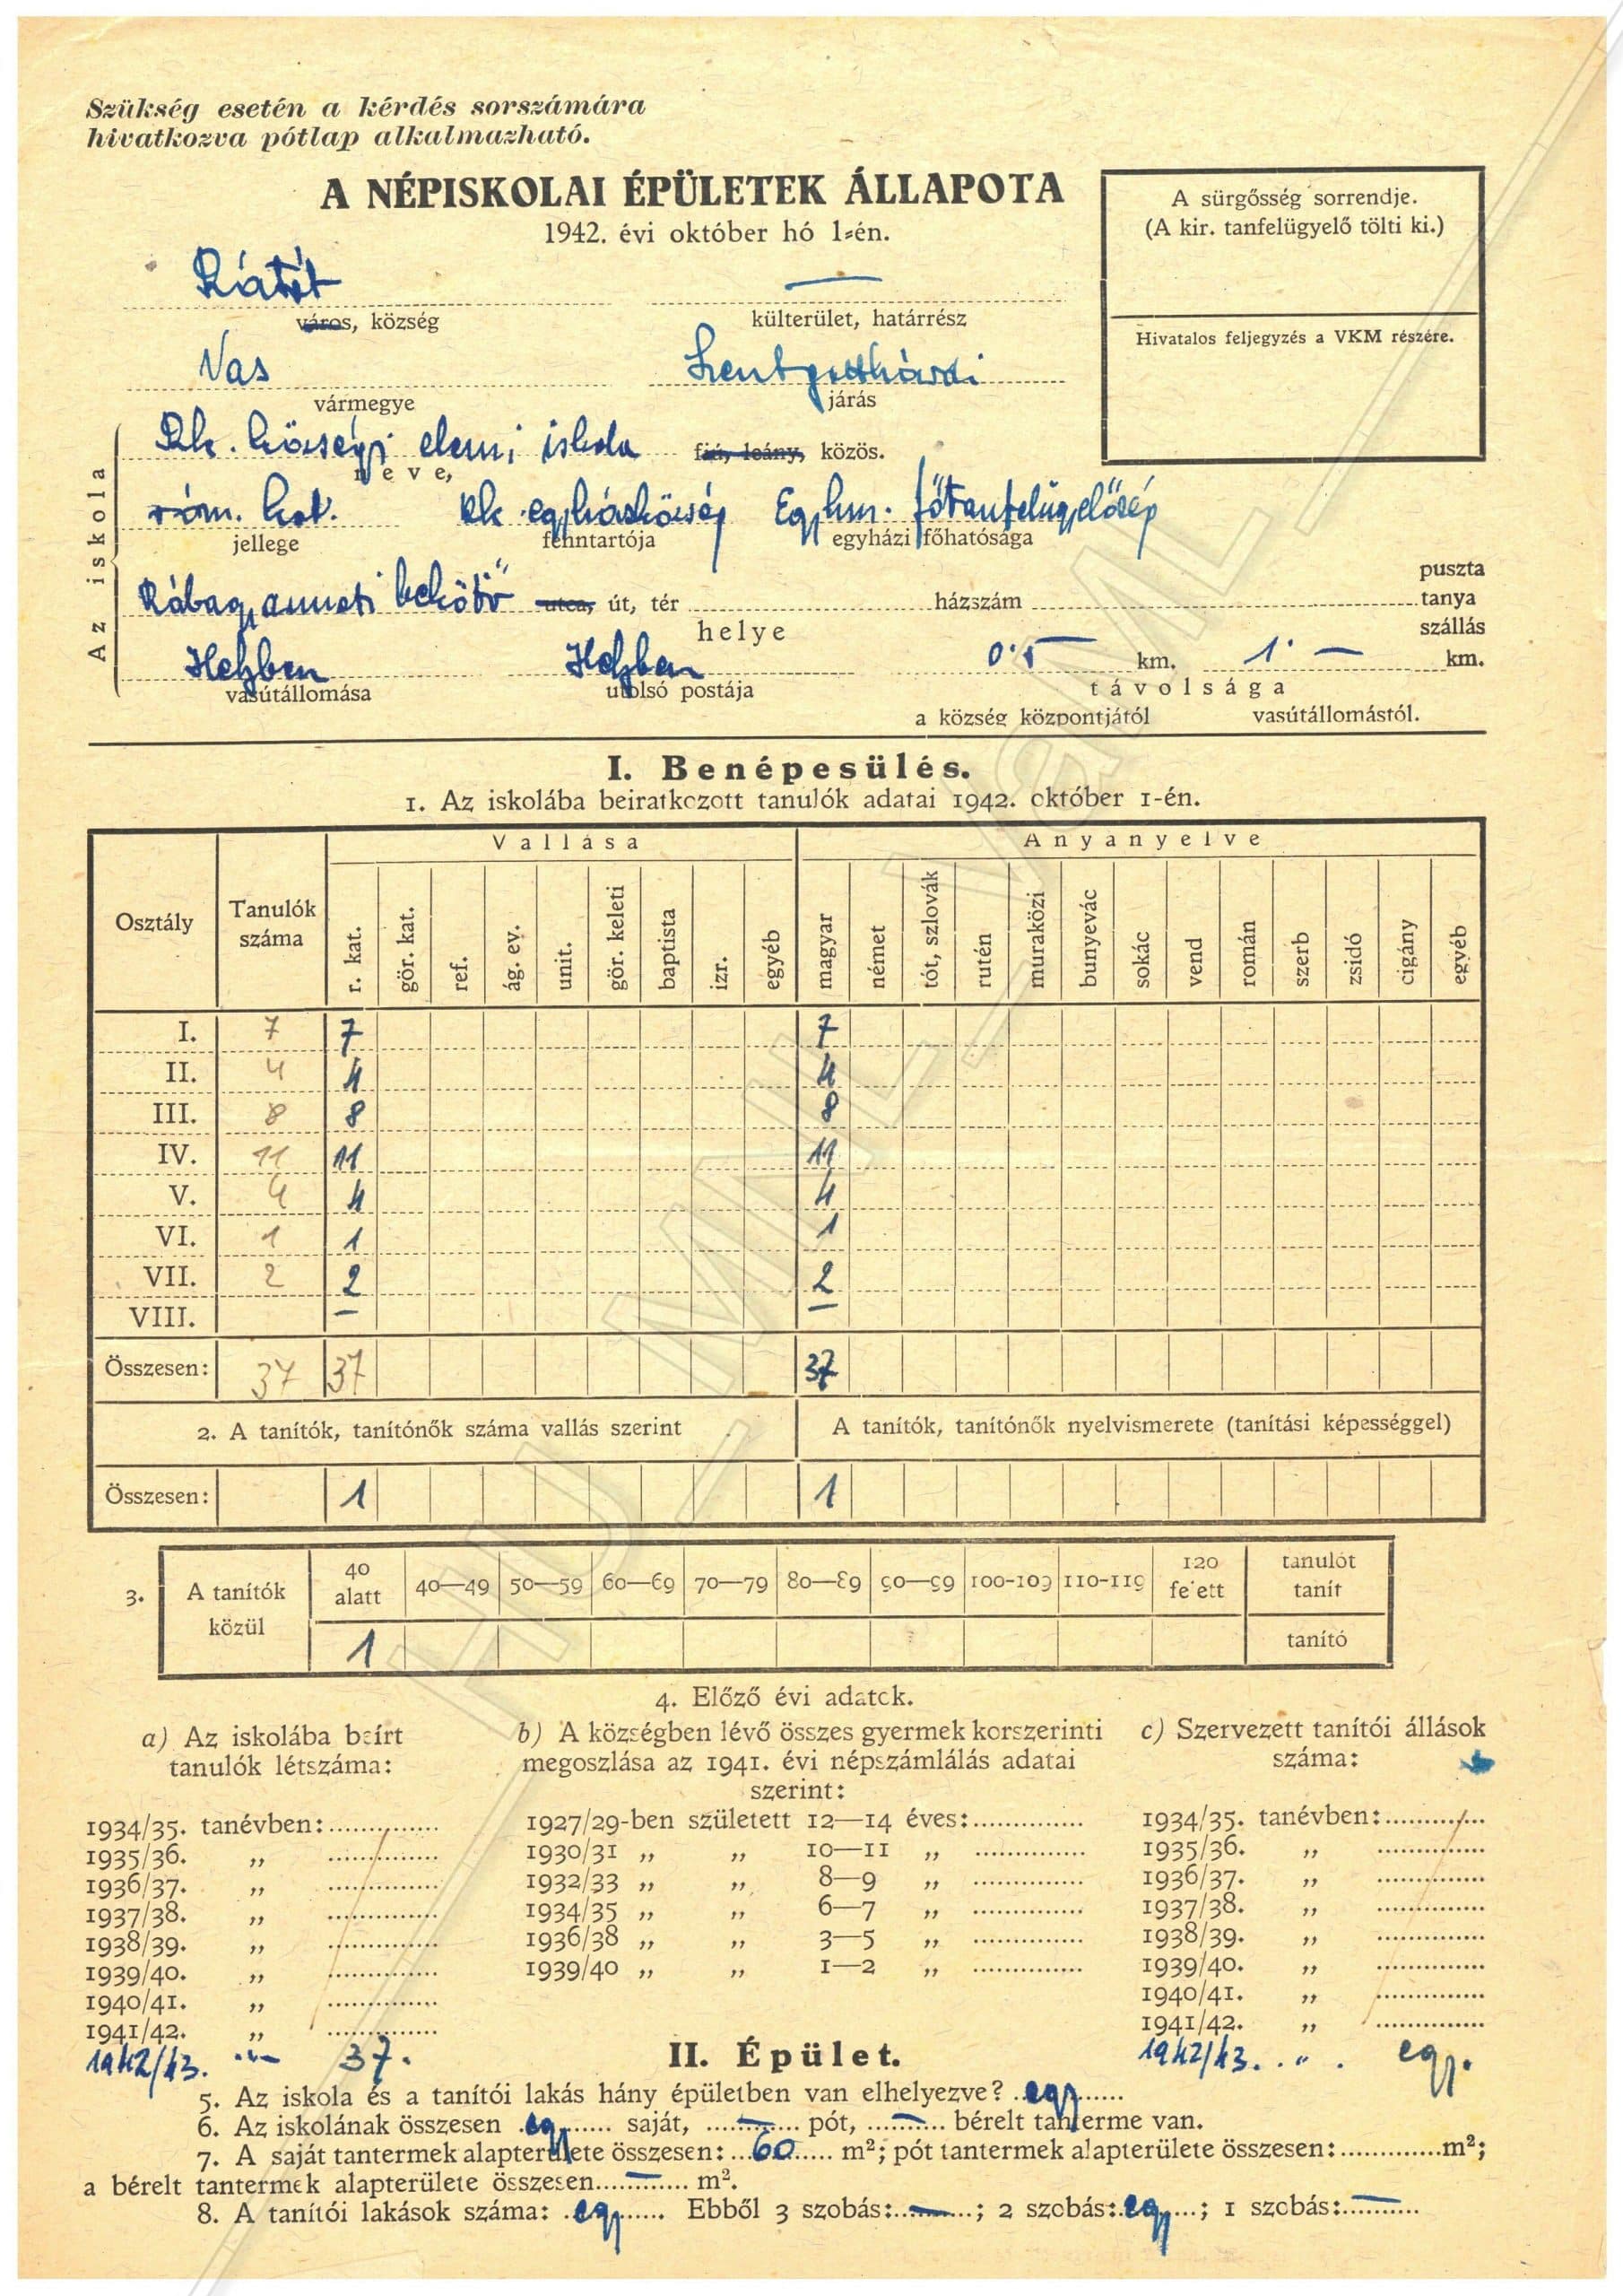 Szükség esetén a kérdés sorszámára
hivatkozva pótlap alkalmazható.
A NÉPISKOLAI ÉPÜLETEK ÁLLAPOTA
1942. évi október hó 1-én.
A sürgősség sorrendje.
(A kir. tanfelügyelő tölti ki.)
Hivatalos feljegyzés a VKM részére.
Rátót —
város, község külterület, határrész
Vas Szentgotthárdi
vármegye járás
Az iskola
Rk. községi elemi iskola fiú, leány, közös.
neve,
róm. kat. Rk. egyházközség Egyhm. főtanfelügyelőség
jellege fenntartója egyházi főhatósága
Rábagyarmati bekötő utca, út, tér házszám puszta tanya szállás
helye
Helyben Helyben 0.5 km. 1.— km.
vasútállomása utolsó postája távolsága
a község központjától vasútállomástól.
I. Benépesülés.
1. Az iskolába beiratkozott tanulók adatai 1942. október 1-én.
Osztály Tanulók száma Vallása Anyanyelve
r. kat. gör. kat. ref. ág. ev. unit. gör. keleti baptista izr. egyéb magyar német tót, szlovák rutén muraközi bunyevác sokác vend román szerb zsidó cigány egyéb
I. 7 7 7
II. 4 4 4
III. 8 8 8
IV. 11 11 11
V. 4 4 4
VI. 1 1 1
VII. 2 2 2
VIII. — —
Összesen: 37 37 37
2. A tanítók, tanítónők száma vallás szerint A tanítók, tanítónők nyelvismerete (tanítási képességgel)
Összesen: 1 1
3. A tanítók közül 40 alatt 40—49 50—59 60—69 70—79 80—89 90—99 100-109 110-119 120 felett tanulót tanít
1 tanító
4. Előző évi adatok.
a) Az iskolába beírt
tanulók létszáma:
1934/35. tanévben:
1935/36. „
1936/37. „
1937/38. „
1938/39. „
1939/40. „
1940/41. „
1941/42. „
1942/43. „ 37.
b) A községben lévő összes gyermek korszerinti
megoszlása az 1941. évi népszámlálás adatai
szerint:
1927/29-ben született 12—14 éves:
1930/31 „ „ 10—11 „
1932/33 „ „ 8—9 „
1934/35 „ „ 6—7 „
1936/38 „ „ 3—5 „
1939/40 „ „ 1—2 „
c) Szervezett tanítói állások
száma:
1934/35. tanévben:
1935/36. „
1936/37. „
1937/38. „
1938/39. „
1939/40. „
1940/41. „
1941/42. „
1942/43. „ egy.
II. Épület.
5. Az iskola és a tanítói lakás hány épületben van elhelyezve? egy
6. Az iskolának összesen egy saját, — pót, — bérelt tanterme van.
7. A saját tantermek alapterülete összesen: 60 m²; pót tantermek alapterülete összesen: m²;
a bérelt tantermek alapterülete összesen — m².
8. A tanítói lakások száma: egy Ebből 3 szobás: — ; 2 szobás: egy ; 1 szobás: —
HU_MNL_VaML